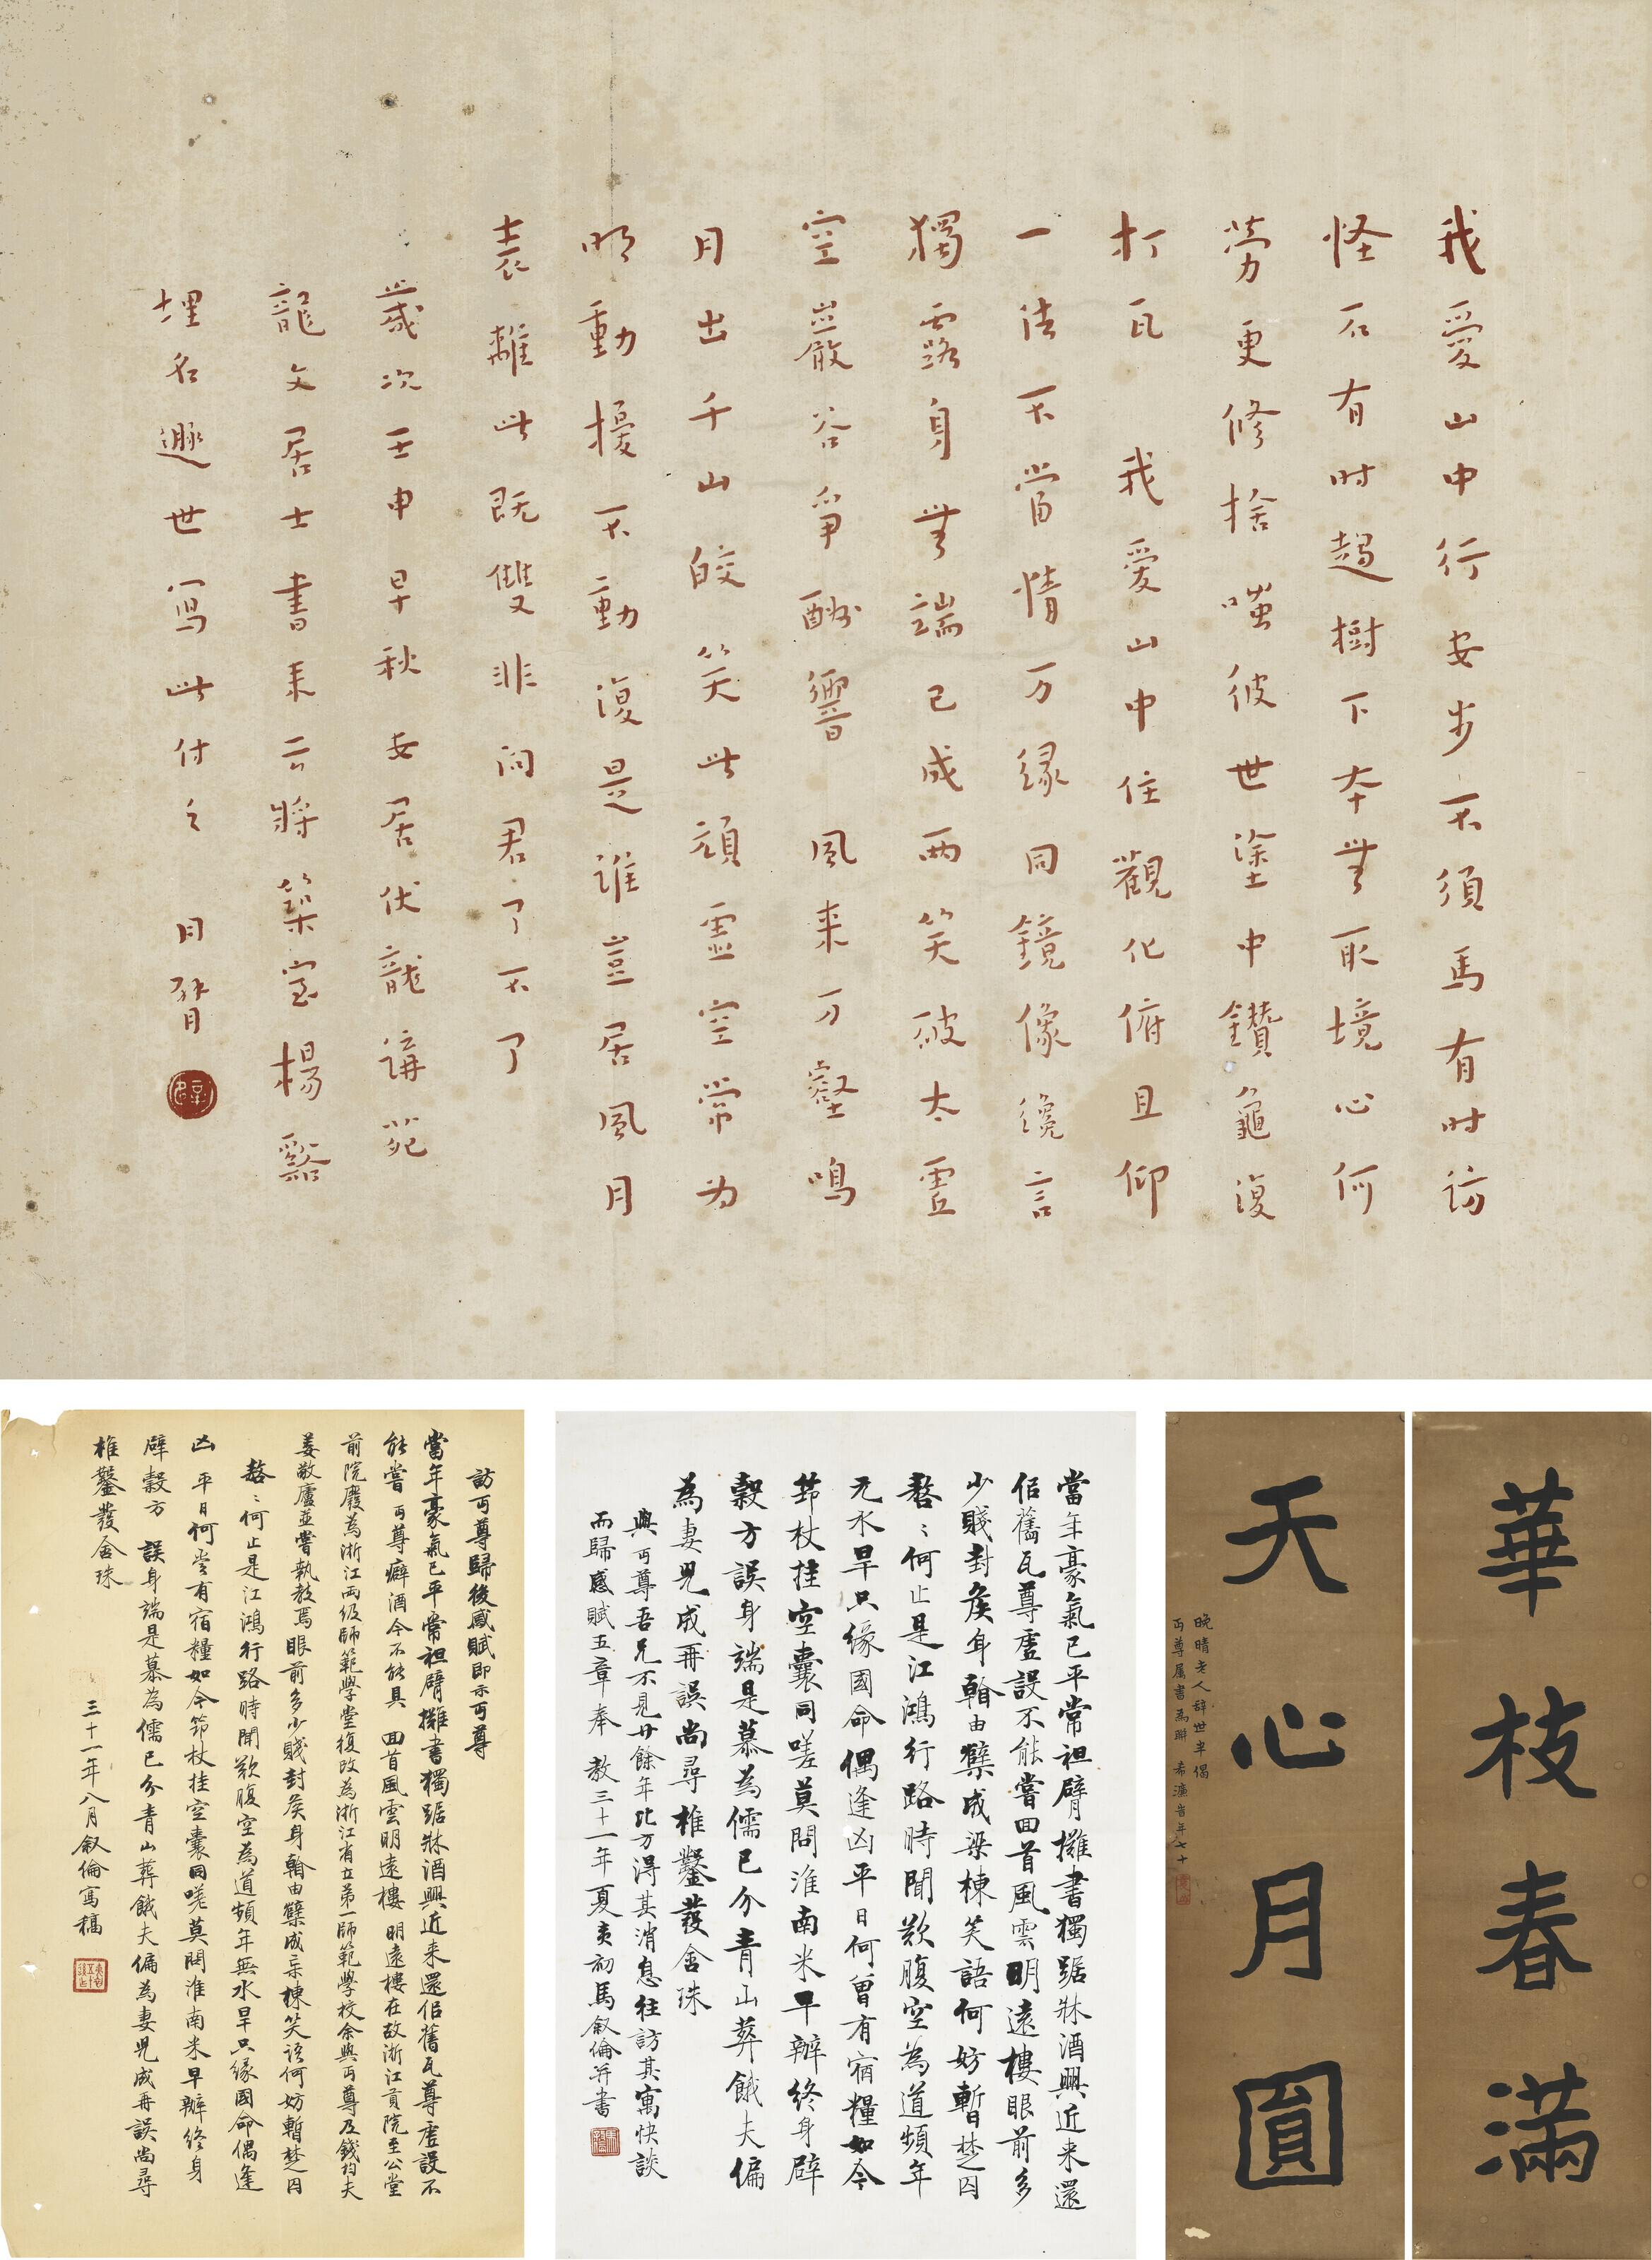 我愛山中行安步不須馬有时访
怪石有时趨樹下本無取境心何
勞更修捨嗤彼世塗中鑽龜復
打瓦　我愛山中住觀化俯且仰
一法不當情万緣同鏡像纔言
獨露身無端已成兩笑破太虛
空巖谷爭酬響　風来万壑鳴
月出千山皎笑此頑靈空常为
明動擾不動復是谁豈居風月
表離此既雙非问君了不了
歲次壬申早秋安居伏龍講苑
龍文居士書来云將築室楊谿
埋名遯世寫此付之　月臂
訪丏尊歸後感賦即示丏尊
當年豪氣已平常袒臂攤書獨踞牀酒興近来還佀舊瓦尊虛設不
能嘗　丏尊癖酒今不能具　回首風雲明遠樓　明遠樓在故浙江貢院至公堂
前院廢為浙江兩级師範學堂復改為浙江省立第一師範學校余與丏尊及錢均夫
姜敬廬並嘗執教焉眼前多少賤封矦身翰由櫱成梁棟笑语何妨暫楚囚
嗸〻何止是江鴻行路時聞歎腹空為道頻年無水旱只緣國命偶逢
凶　平日何嘗有宿糧如今筇杖挂空囊同嗟莫問淮南米早辦终身
辟榖方　誤身端是慕為儒已分青山葬餓夫偏為妻児成再誤尚尋
椎鑿發含珠
三十一年八月叙倫寫稿
當年豪氣已平常袒臂攤書獨踞牀酒興近来還
佀舊瓦尊虛設不能嘗回首風雲明遠樓眼前多
少賤封矦身翰由櫱成梁棟笑語何妨暫楚囚
嗸〻何止是江鴻行路時聞歎腹空為道頻年
无水旱只缘國命偶逢凶平日何曾有宿糧如今
筇杖挂空囊同嗟莫問淮南米早辦终身辟
榖方誤身端是慕為儒已分青山葬餓夫偏
為妻児成再誤尚尋椎鑿發含珠
與丏尊吾兄不見廿餘年比方得其消息往訪其寓快談
而歸感賦五章奉　教三十一年夏亥初馬叙倫并書
華枝春滿
天心月圓
晚晴老人辞世半偈
丏尊属書為聯　希濂音年七十